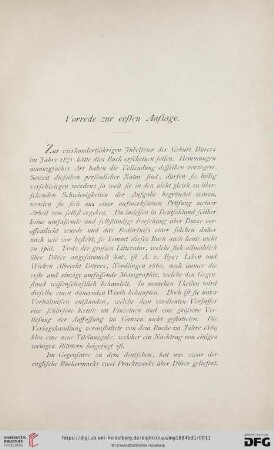 Vorrede zur ersten Auflage.
Zur vierhundertjährigen Jubelfeier der Geburt Dürers
im Jahre 1871 hätte dies Buch erscheinen sollen. Hemmungen
mannigfacher Art haben die Vollendung desselben verzögert.
Soweit dieselben persönlicher Natur sind, dürfen sie billig
verschwiegen werden; so weit sie in den nicht gleich zu über-
sehenden Schwierigkeiten der Aufgabe begründet waren,
werden sie sich aus einer aufmerksamen Prüfung meiner
Arbeit von selbst ergeben. Da indessen in Deutschland seither
keine umfassende und selbständige Forschung über Dürer ver-
öffentlicht wurde und das Bedürfniss einer solchen daher
nach wie vor besteht, so kommt dieses Buch auch heute nicht
zu spät. Trotz der grossen Litteratur, welche sich allmählich
über Dürer angesammelt hat, ist A. v. Eye: Leben und
Wirken Albrecht Dürers, Nördlingen 1860, noch immer die
erste und einzige umfassende Monographie, welche den Gegen-
stand wissenschaftlich behandelt. In manchen Theilen wird
dieselbe einen dauernden Werth behaupten. Doch ist sie unter
Verhältnissen entstanden, welche dem verdienten Verfasser
eine schärfere Kritik im Einzelnen und eine grössere Ver-
tiefung der Auffassung im Ganzen nicht gestatteten. Die
Verlagshandlung veranstaltete von dem Buche im Jahre 1869
blos eine neue Titelausgabe, welcher ein Nachtrag von einigen
wenigen Blättern beigefügt ist.
Im Gegensatze zu dem deutschen, hat uns zwar der
englische Büchermarkt zwei Prachtwerke über Dürer geliefert.
UNIVERSITÄTS-
BIBLIOTHEK
HEIDELBERG
http://digi.ub.uni-heidelberg.de/diglit/thausing1884bd1/0011
© Universitätsbibliothek Heidelberg
gefördert durch die
DFG